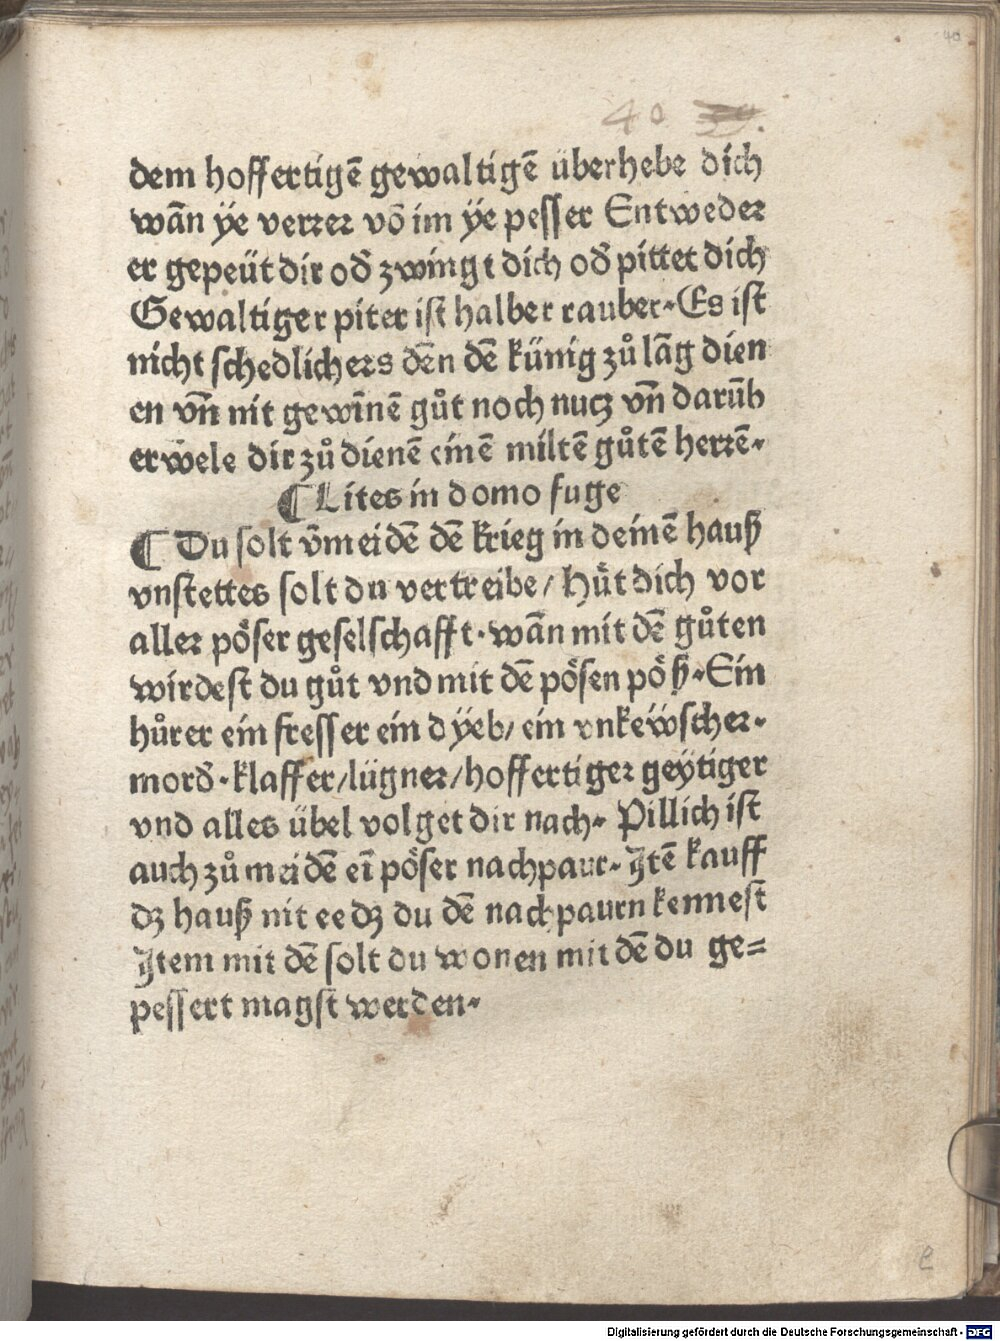 40
40 39.
dem hoffertigē gewaltigē überhebe dich
wān ÿe verꝛeꝛ vō im ÿe pesser Entwedeꝛ
er gepeüt dir od̄ zwingt dich od̄ pittet dich
Gewaltiger piter ist halber rauber. Es ist
nicht schedlicheꝛs dēn dē künig zů lāg dien
en vn̄ nit gewīnē gůt noch nutz vn̄ darūb
erwele dir zů dienē einē miltē gůtē herꝛē.
¶ Lites in domo fuge
¶ Du solt v̄meidē dē krieg in deinē hauß
vnstettes solt du vertreibe / Hüt dich vor
alleꝛ pöser geselschafft. wān mit dē gůten
wirdest du gůt vnd mit dē pösen pöß. Ein
hůrer ein fresser ein dÿeb / ein vnkeẅscheꝛ.
mord̄. klaffer / lügneꝛ / hoffertigeꝛ geÿtiger
vnd alles übel volget dir nach. Pillich ist
auch zů meidē eī pöser nachpaur. Itē kauff
dꝫ hauß nit ee dꝫ du dē nachpaurn kennest
Item mit dē solt du wonen mit dē du ge=
pessert magst werden.
e
Digitalisierung gefördert durch die Deutsche Forschungsgemeinschaft - DFG